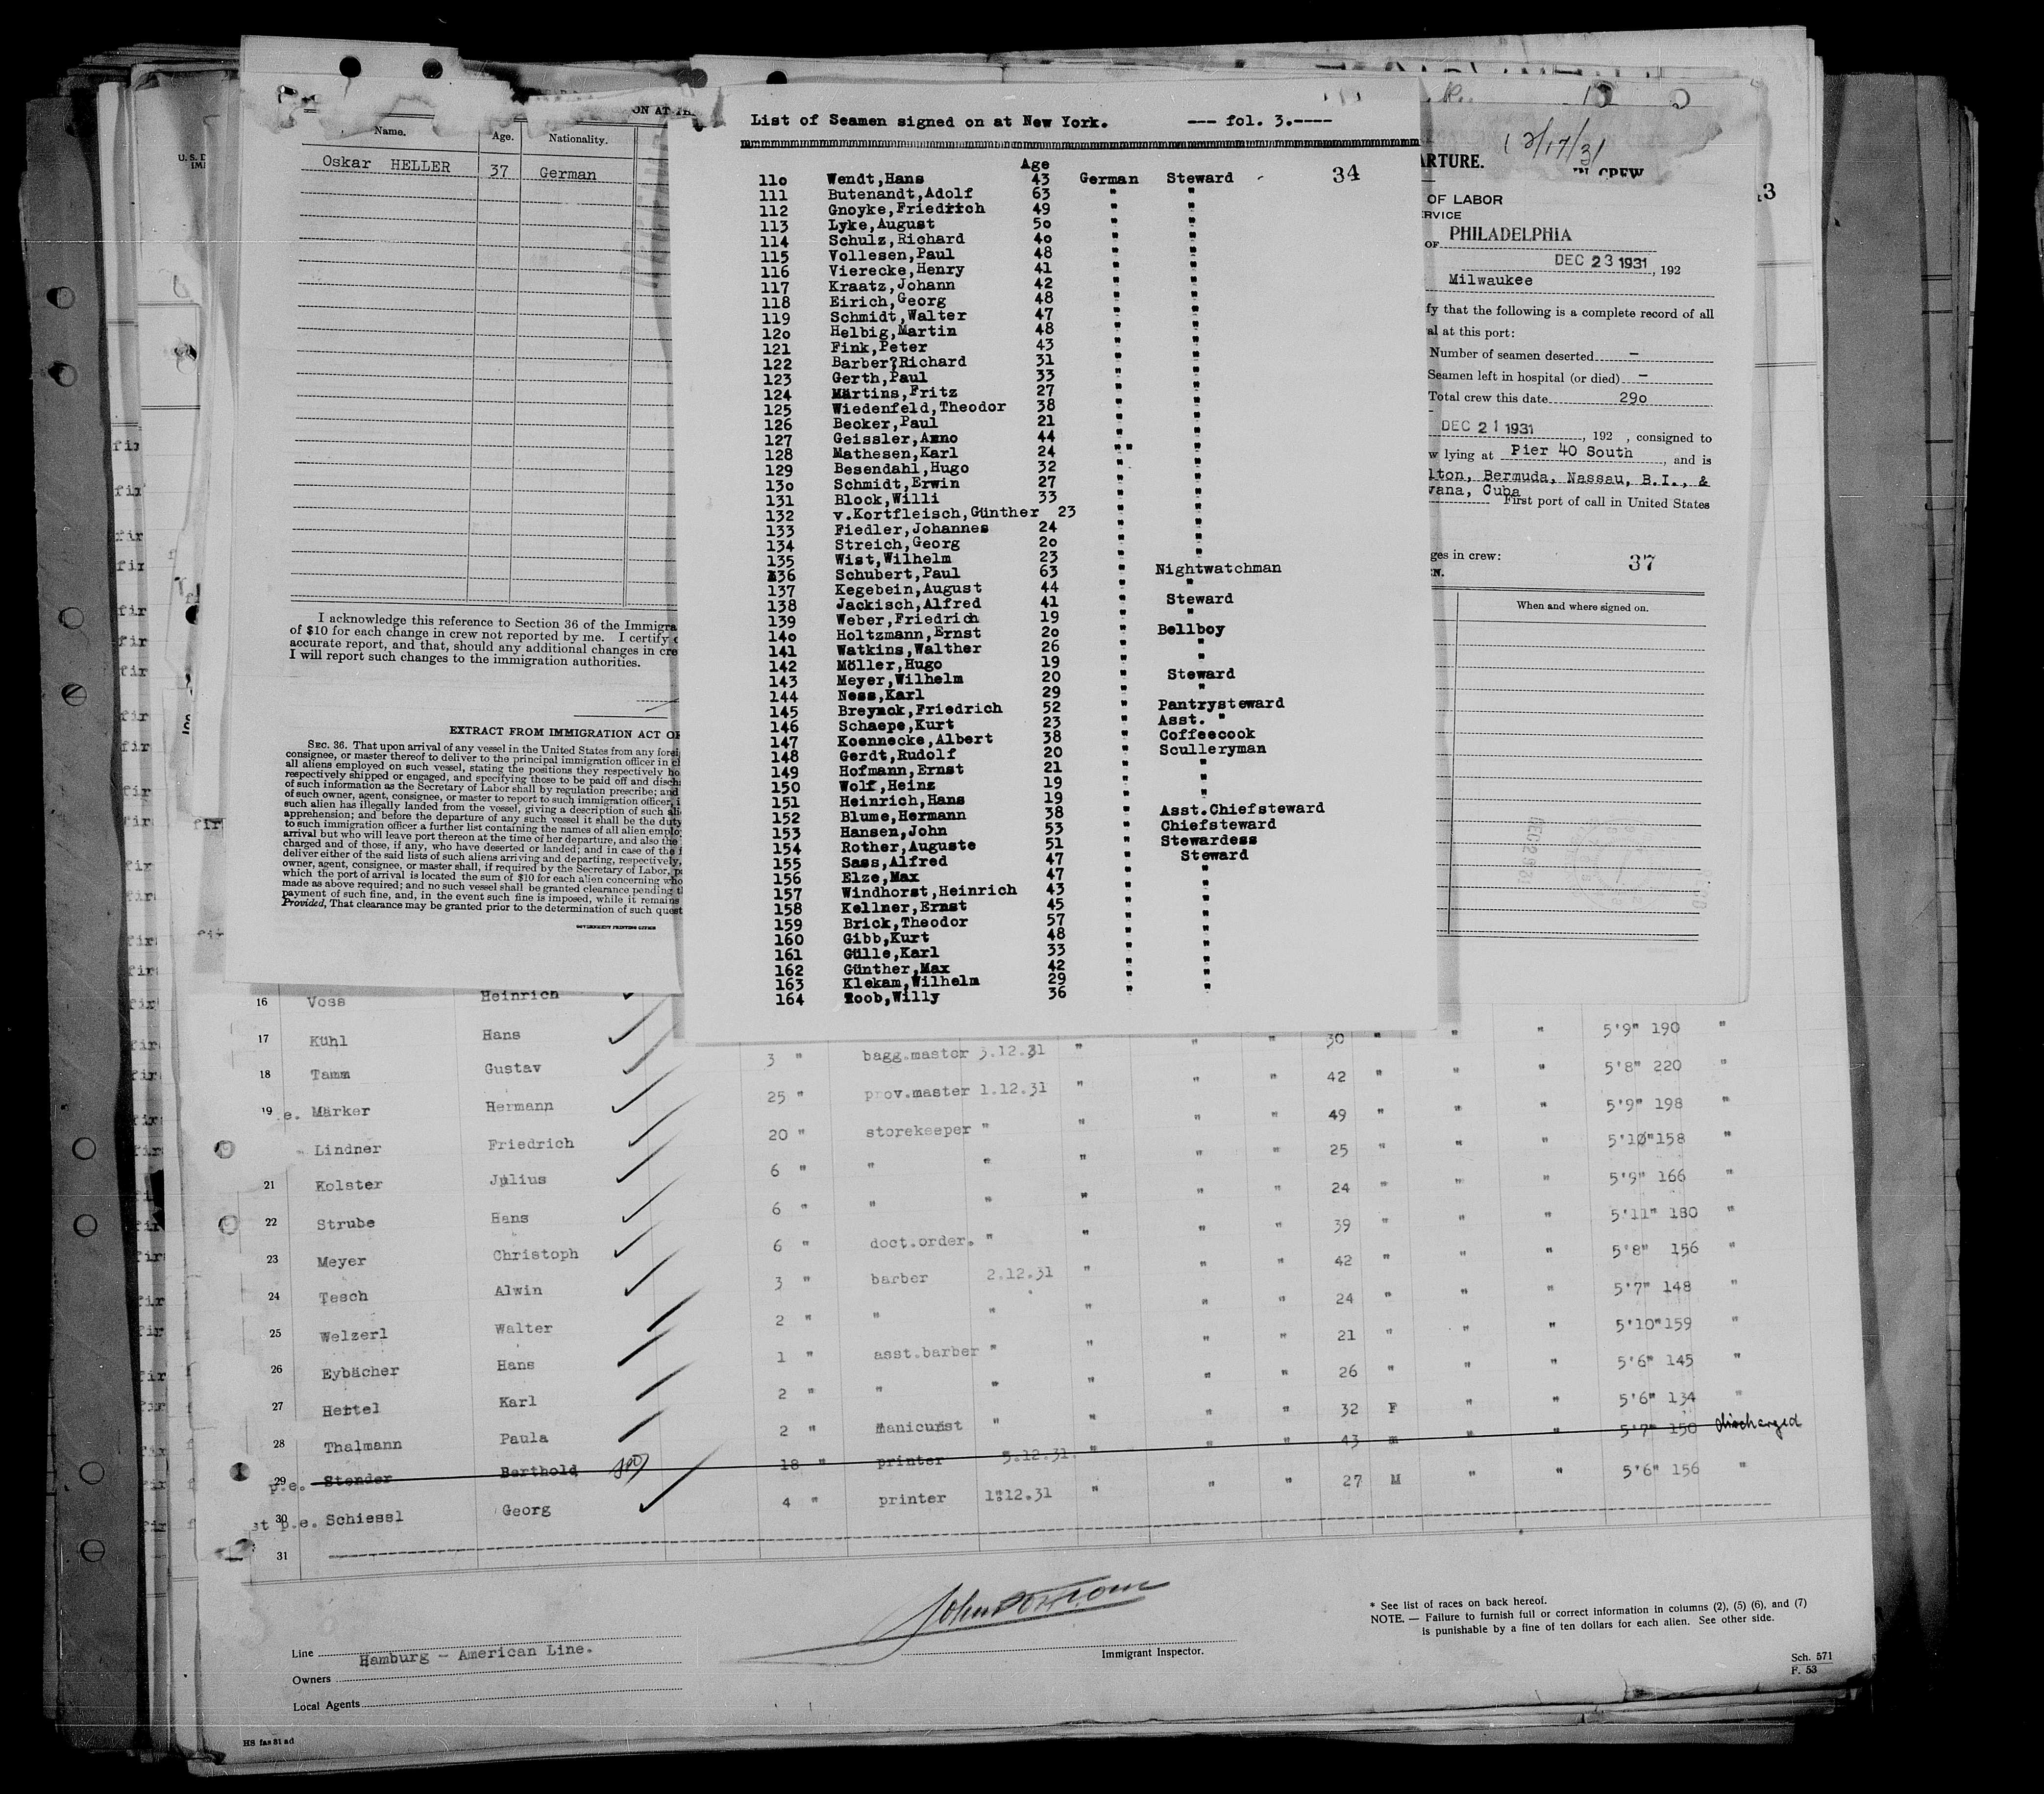 ON AT TH
Name. Age. Nationality.
Oskar HELLER 37 German
I acknowledge this reference to Section 36 of the Immigra
of $10 for each change in crew not reported by me. I certify
accurate report, and that, should any additional changes in cre
I will report such changes to the immigration authorities.
EXTRACT FROM IMMIGRATION ACT OF
SEC. 36. That upon arrival of any vessel in the United States from any forei
consignee, or master thereof to deliver to the principal immigration officer in c
all aliens employed on such vessel, stating the positions they respectively ho
respectively shipped or engaged, and specifying those to be paid off and disch
of such information as the Secretary of Labor shall by regulation prescribe; and
of such owner, agent, consignee, or master to report to such immigration officer, i
such alien has illegally landed from the vessel, giving a description of such ali
apprehension; and before the departure of any such vessel it shall be the duty
to such immigration officer a further list containing the names of all alien emplo
arrival but who will leave port thereon at the time of her departure, and also the
charged and of those, if any, who have deserted or landed; and in case of the f
deliver either of the said lists of such aliens arriving and departing, respectively,
owner, agent, consignee, or master shall, if required by the Secretary of Labor, p
which the port of arrival is located the sum of $10 for each alien concerning who
made as above required; and no such vessel shall be granted clearance pending t
payment of such fine, and, in the event such fine is imposed, while it remains
Provided, That clearance may be granted prior to the determination of such quest
GOVERNMENT PRINTING OFFICE
List of Seamen signed on at New York. --- fol. 3.----
Age
34
110 Wendt,Hans 43 German Steward
111 Butenandt,Adolf 63 " "
112 Gnoyke,Friedrich 49 " "
113 Lyke,August 50 " "
114 Schulz,Richard 40 " "
115 Vollesen,Paul 48 " "
116 Vierecke,Henry 41 " "
117 Kraatz,Johann 42 " "
118 Eirich,Georg 48 " "
119 Schmidt,Walter 47 " "
120 Helbig,Martin 48 " "
121 Fink,Peter 43 " "
122 Barber?Richard 31 " "
123 Gerth,Paul 33 " "
124 Märtins,Fritz 27 " "
125 Wiedenfeld,Theodor 38 " "
126 Becker,Paul 21 " "
127 Geissler,Anno 44 " "
128 Mathesen,Karl 24 " " "
129 Besendahl,Hugo 32 " "
130 Schmidt,Erwin 27 " "
131 Block,Willi 33 " "
132 v.Kortfleisch,Günther 23 " "
133 Fiedler,Johannes 24 " "
134 Streich,Georg 20 " "
135 Wist,Wilhelm 23 " "
136 Schubert,Paul 63 " Nightwatchman
137 Kegebein,August 44 " "
138 Jackisch,Alfred 41 " Steward
139 Weber,Friedrich 19 " "
140 Holtzmann,Ernst 20 " Bellboy
141 Watkins,Walther 26 " "
142 Möller,Hugo 19 "
143 Meyer,Wilhelm 20 " Steward
144 Ness,Karl 29 " "
145 Breynck,Friedrich 52 " Pantrysteward
146 Schaepe,Kurt 23 " Asst. "
147 Koennecke,Albert 38 " Coffeecook
148 Gerdt,Rudolf 20 " Sculleryman
149 Hofmann,Ernst 21 " "
150 Wolf,Heinz 19 " "
151 Heinrich,Hans 19 " "
152 Blume,Hermann 38 " Asst.Chiefsteward
153 Hansen,John 53 " Chiefsteward
154 Rother,Auguste 51 " Stewardess
155 Sass,Alfred 47 " Steward
156 Elze,Max 47 " "
157 Windhorst,Heinrich 43 " "
158 Kellner,Ernst 45 " "
159 Brick,Theodor 57 " "
160 Gibb,Kurt 48 " "
161 Gülle,Karl 33 " "
162 Günther,Max 42 " "
163 Klekam,Wilhelm 29 " "
164 Roob,Willy 36 " "
12/17/31
ARTURE.
IN CREW
OF LABOR
RVICE
OF PHILADELPHIA
DEC 23 1931, 192
Milwaukee
fy that the following is a complete record of all
al at this port:
Number of seamen deserted -
Seamen left in hospital (or died) -
Total crew this date 290
DEC 21 1931, 192 , consigned to
w lying at Pier 40 South, and is
lton, Bermuda, Nassau, B.I., &
vana, Cuba
First port of call in United States
ges in crew:
37
N.
When and where signed on.
16 Voss Heinrich
17 Kühl Hans 30 " " " 5'9" 190 "
18 Tamm Gustav 3 " bagg.master 3.12.31 " " " 42 " " " 5'8" 220 "
19 .e. Märker Hermann 25 " prov.master 1.12.31 " " " 49 " " " 5'9" 198 "
Lindner Friedrich 20 " storekeeper " " " " 25 " " " 5'10" 158 "
21 Kolster Julius 6 " " " " " " 24 " " " 5'9" 166 "
22 Strube Hans 6 " " " " " " 39 " " " 5'11" 180 "
23 Meyer Christoph 6 " doct.order. " " " " 42 " " " 5'8" 156 "
24 Tesch Alwin 3 " barber 2.12.31 " " " 24 " " " 5'7" 148 "
25 Welzerl Walter 2 " " " " " " 21 " " " 5'10" 159 "
26 Eybächer Hans 1 " asst.barber " " " " 26 " " " 5'6" 145 "
27 Hertel Karl 2 " " " " " " 32 F " " 5'6" 134 "
28 Thalmann Paula 2 " manicurist " " " " 43 m " " 5'7" 150 discharged
29 p.e. Stender Berthold 18 " printer 5.12.31. " " " 27 M " " 5'6" 156 "
30 st p.e. Schiessl Georg 4 " printer 1.12.31 "
31
Line Hamburg - American Line.
Owners
Local Agents
Immigrant Inspector.
* See list of races on back hereof.
NOTE. — Failure to furnish full or correct information in columns (2), (5) (6), and (7)
is punishable by a fine of ten dollars for each alien. See other side.
Sch. 571
F. 53
HS fas 81 ad